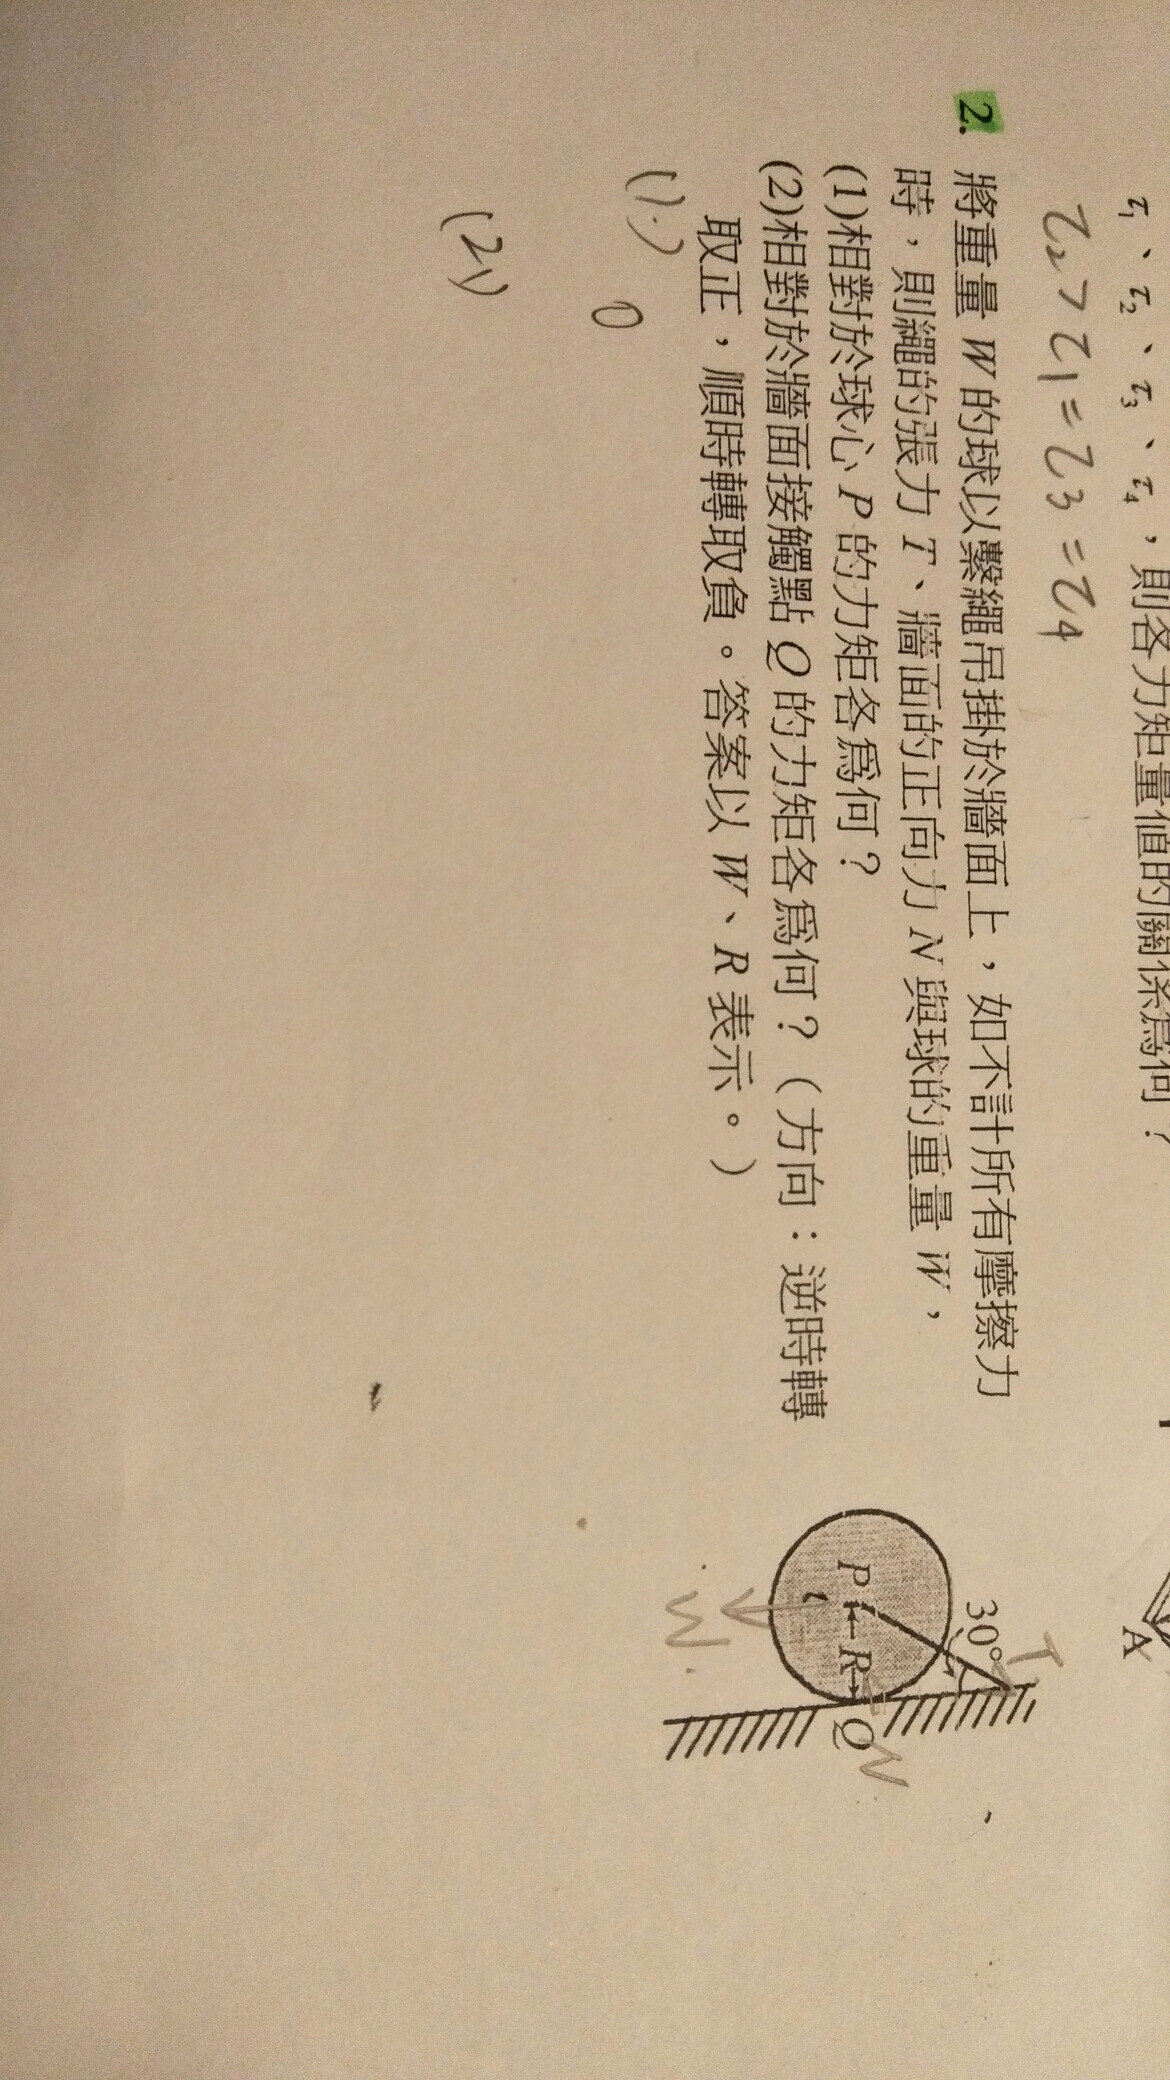 τ₁、τ₂、τ₃、τ₄，則各力矩量值的關係為何？
τ₂ > τ₁ = τ₃ = τ₄
2. 將重量 W 的球以繫繩吊掛於牆面上，如不計所有摩擦力
時，則繩的張力 T、牆面的正向力 N 與球的重量 W，
(1)相對於球心 P 的力矩各為何？
(2)相對於牆面接觸點 Q 的力矩各為何？（方向：逆時轉
取正，順時轉取負。答案以 W、R 表示。）
(1)
0
(2)
A
30°
T
P
R
Q
N
W